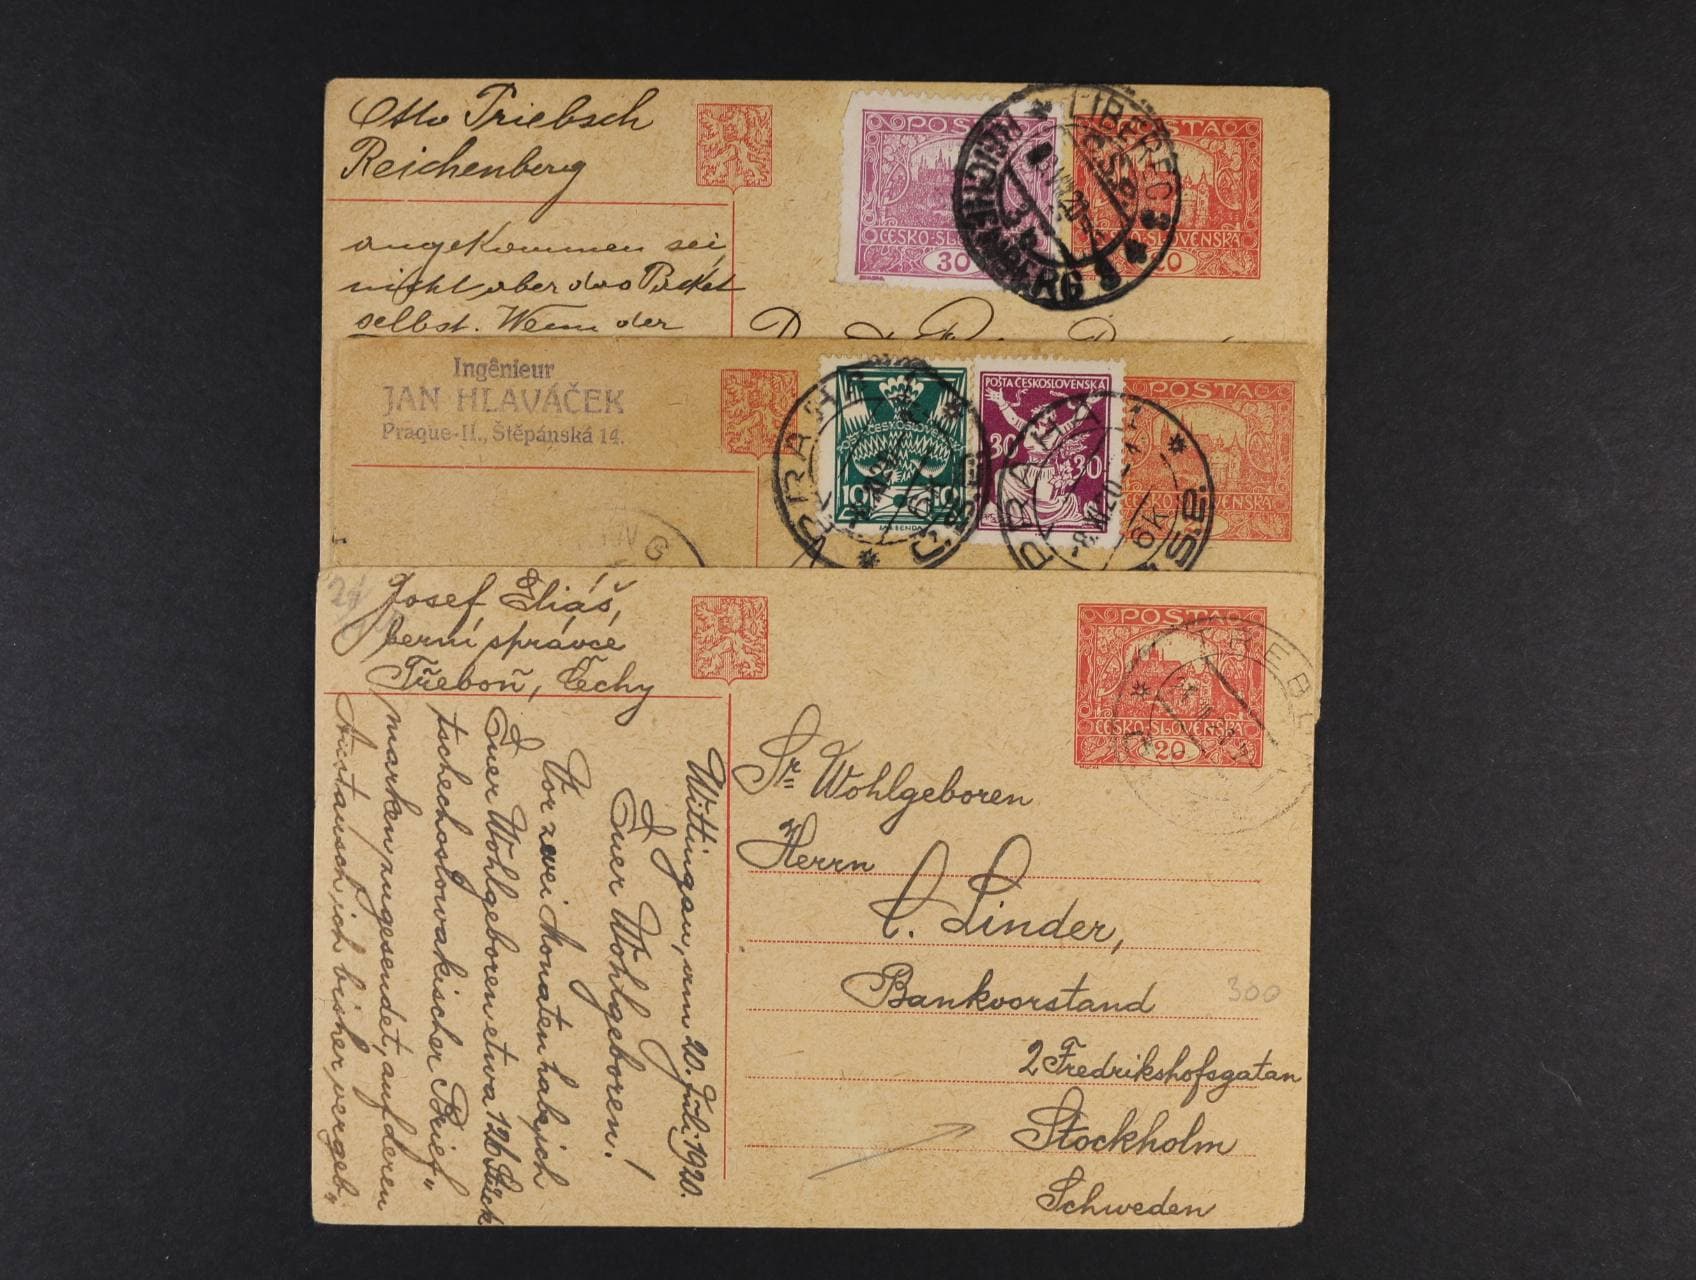 Otto Triebsch
Reichenberg
angekommen sei,
nicht aber das Packet
selbst. Wenn der
POSTA
ČESKO-SL
30
LIBEREC 3
REICHENBERG 3
ČSP
POSTA
ČESKO-SLOVENSKÁ
20
Ingênieur
JAN HLAVÁČEK
Praque-II., Štěpánská 14.
POSTA ČESKOSLOVENSKÁ
10 10
POSTA ČESKOSLOVENSKÁ
30 30
PRAHA
PRAHA 1
6K
POSTA
ČESKO-SLOVENSKÁ
Josef Eliáš,
berní správce
Třeboň, Čechy
POSTA
ČESKO-SLOVENSKÁ
20
Wittingau, am 20. Juli 1920.
Euer Wohlgeboren!
Vor zwei Monaten habe ich
Euer Wohlgeboren etwa 126 Stück
tschechoslowakischer Brief„
marken zugesendet, auf deren
Austausch ich bisher vergeb„
Sr. Wohlgeboren
Herrn
C. Linder,
Bankvorstand
300
2 Fredrikshofsgatan
Stockholm
Schweden